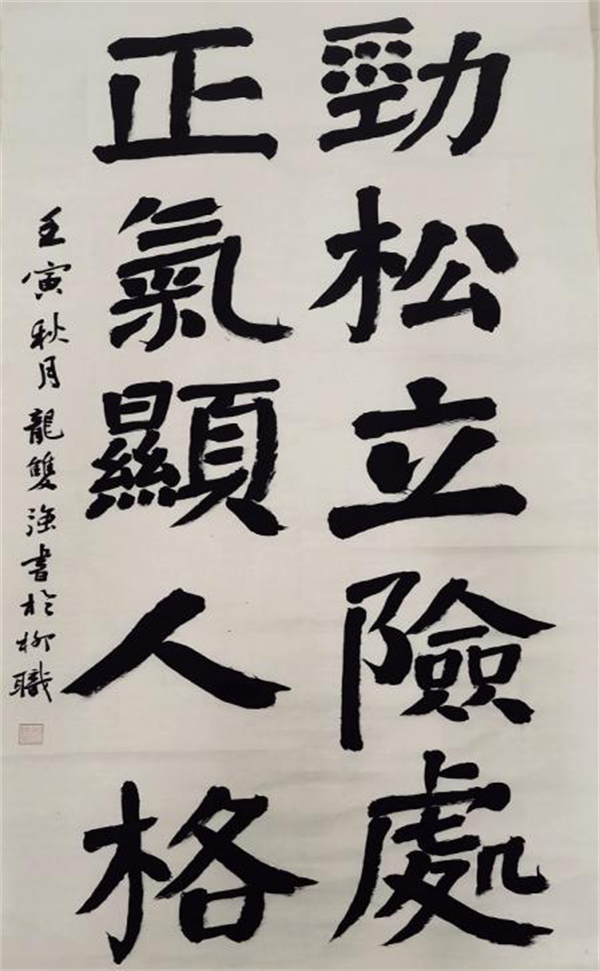 勁松立險處
正氣顯人格
壬寅秋月龍雙強書於柳職